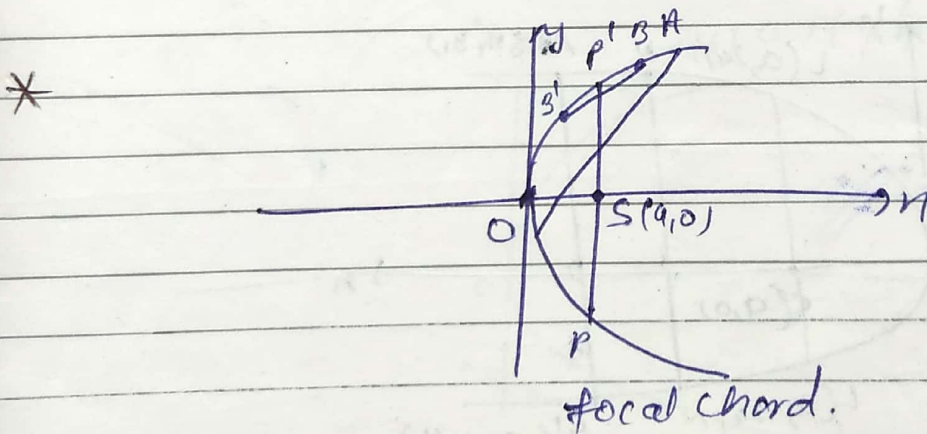 *
y
P' B A
B'
O S(a,0) x
P
focal chord.